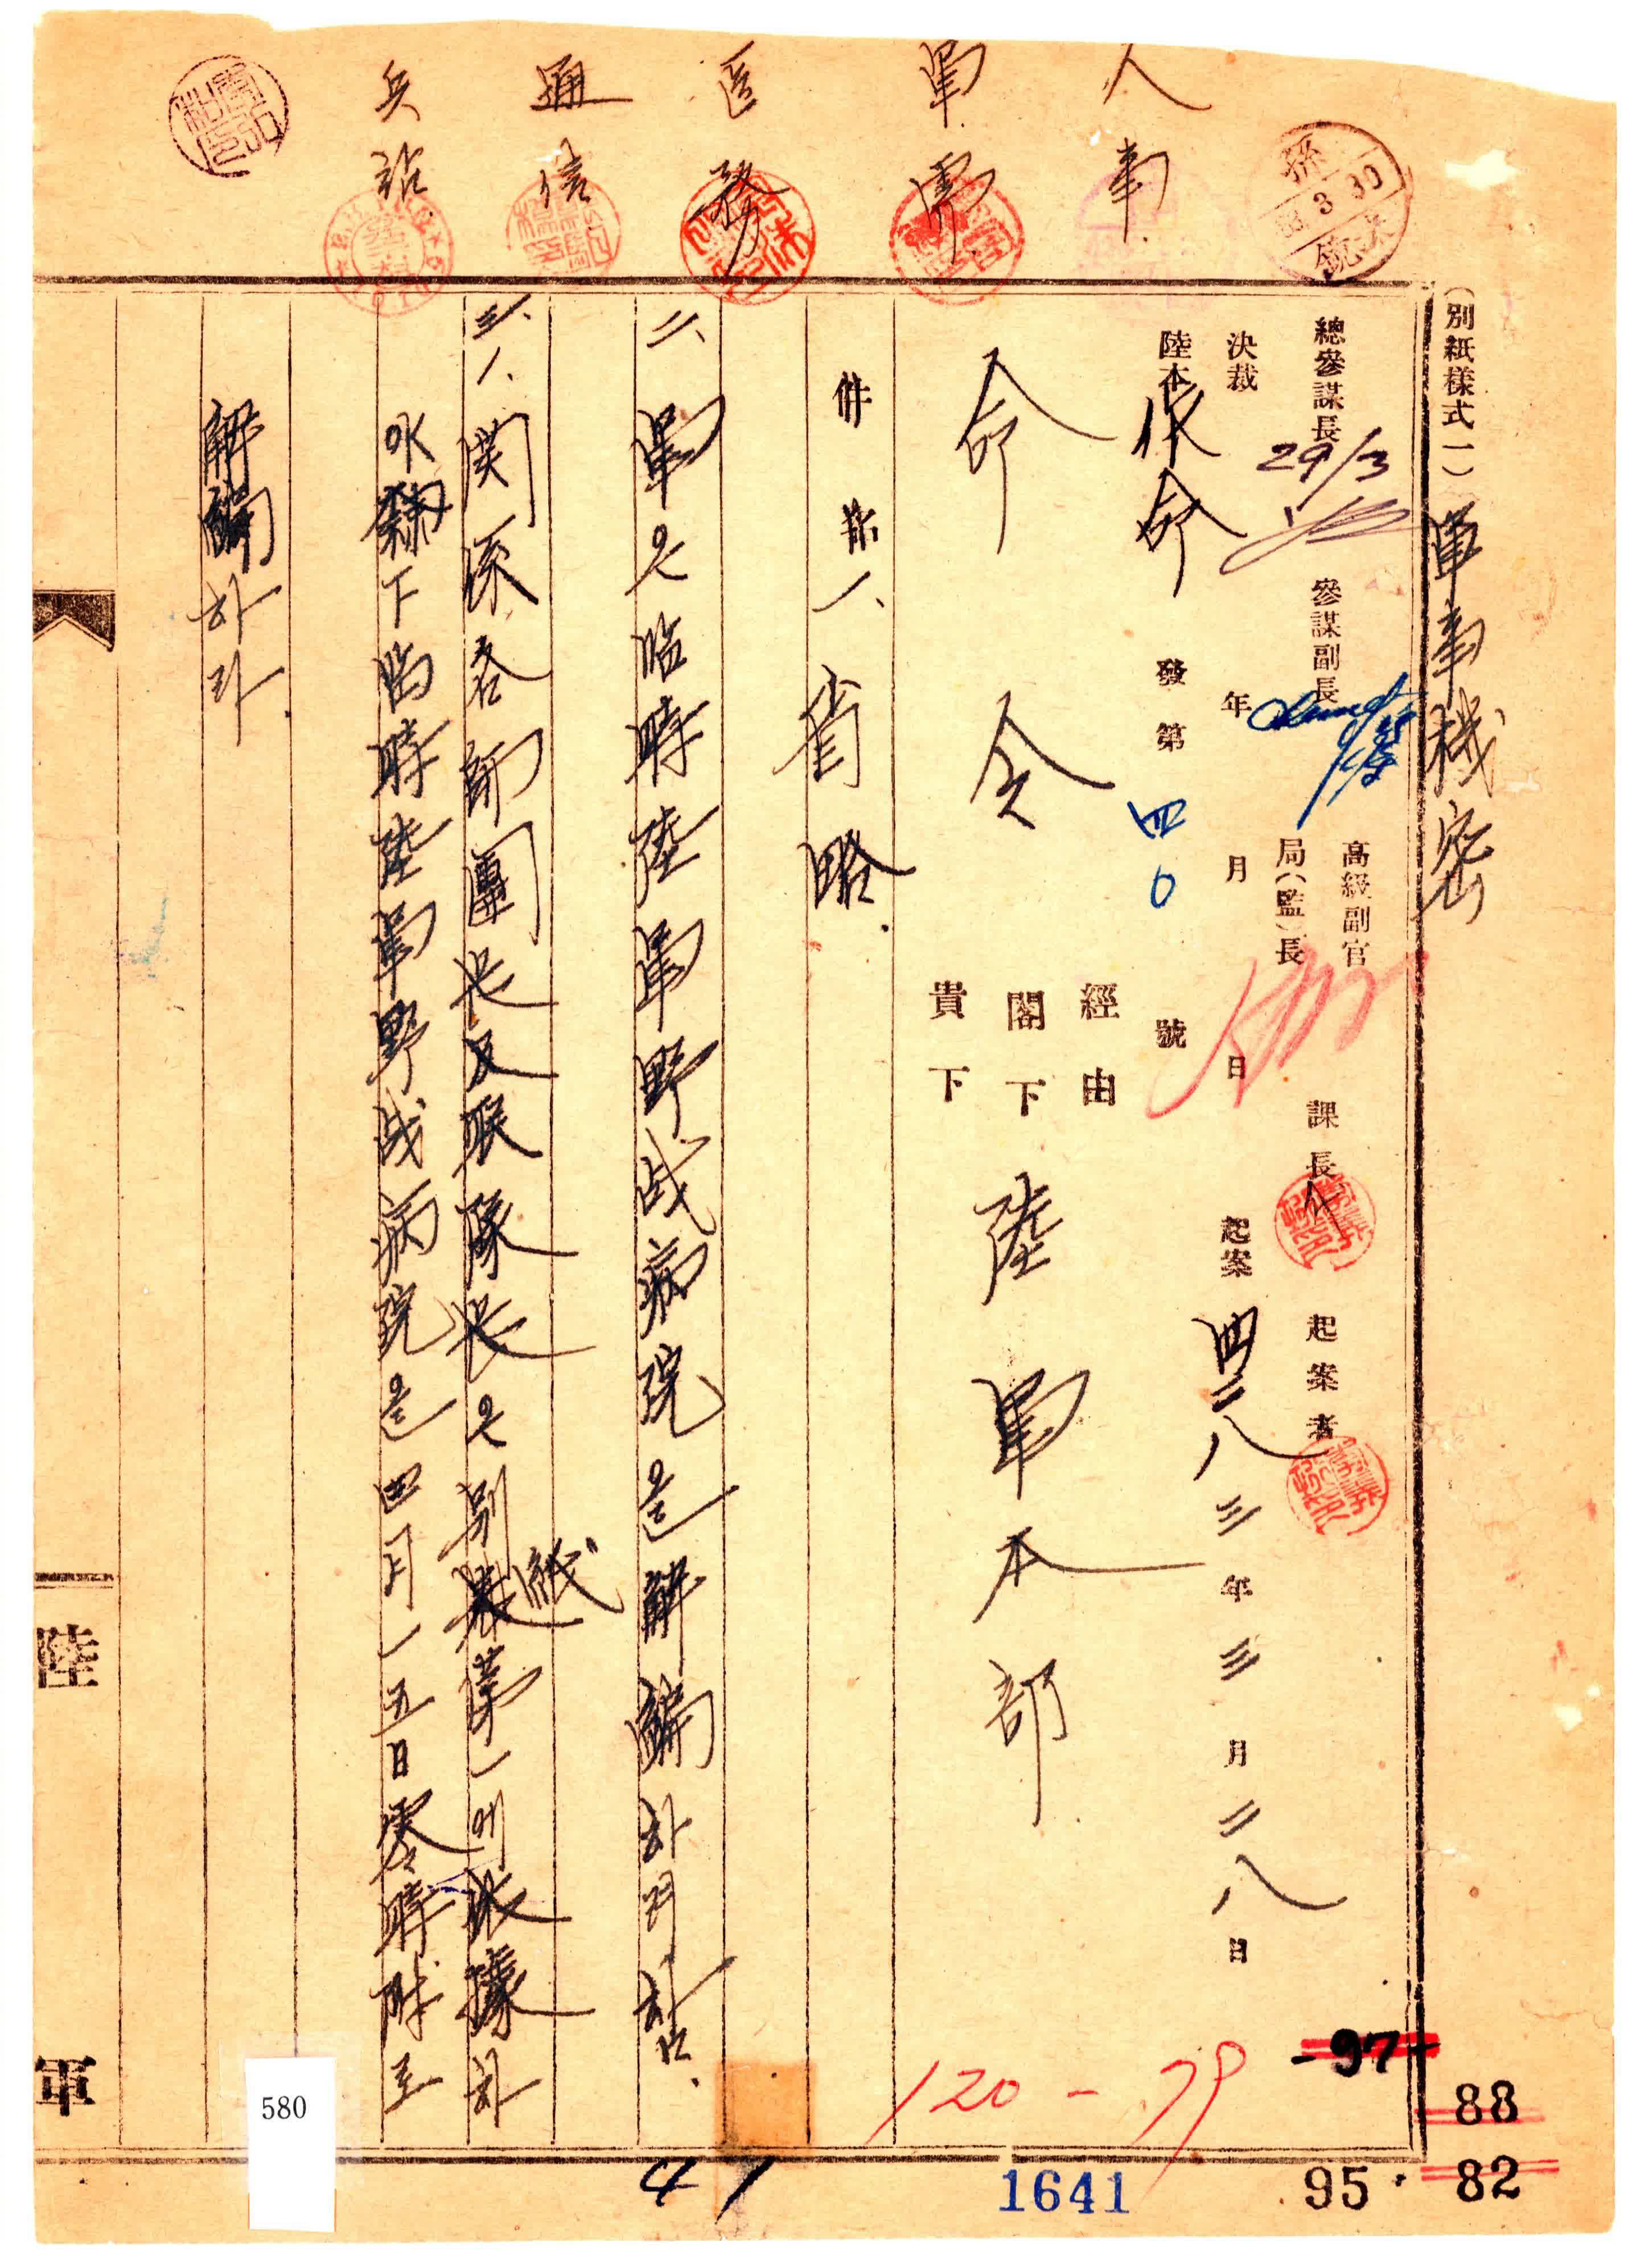 人事
軍需
医務
通信
兵站
孫
83 3 30
(別紙樣式一) 軍事機密
總參謀長 29/3
參謀副長
高級副官
局(監)長
課長 代
起案者
決裁 年 月 日
起案 四二八三年三月二八日
陸本作命 發第 四0 號
命令
經由
閣下
貴下
陸軍本部
件指一、省略.
二、軍은臨時陸軍野战病院을解編하려함.
三、1、関係各師團长及聯隊长은別紙第一에依據하
야隷下臨時陸軍野战病院을四月一五日零時附로
解編하라.
陸
軍
580
120-79
-97-
88
82
95
1641
41